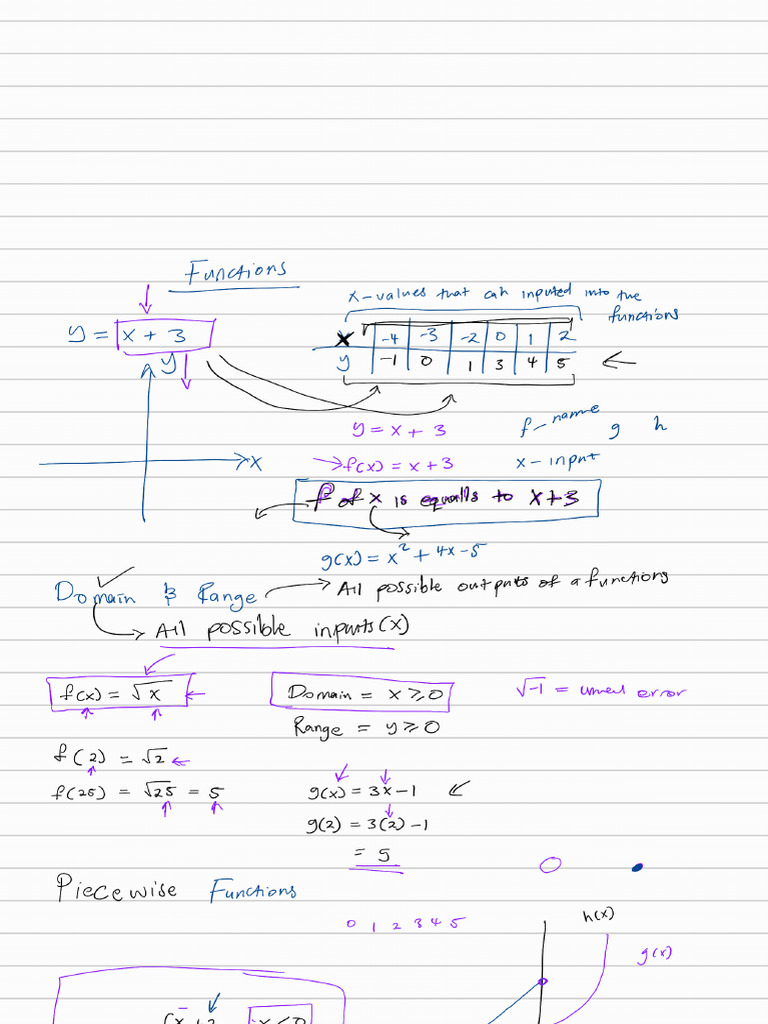 Functions
x-values that can inputed into the
functions
y = x + 3
x -4 -3 -2 0 1 2
y -1 0 1 3 4 5
y
y = x + 3
f - name g h
x
f(x) = x + 3
x - input
f of x is equalls to x + 3
g(x) = x² + 4x - 5
Domain & Range
All possible outputs of a functions
All possible inputs (x)
f(x) = √x
Domain = x ≥ 0
√-1 = error
Range = y ≥ 0
f(2) = √2
f(25) = √25 = 5
g(x) = 3x - 1
g(2) = 3(2) - 1
= 5
Piecewise Functions
0 1 2 3 4 5
h(x)
g(x)